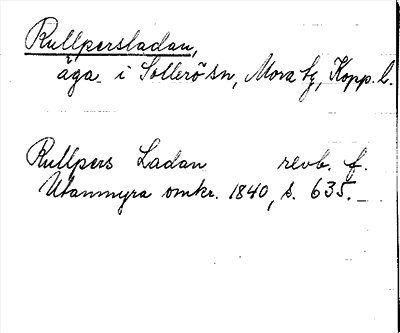 Rullpersladan,
äga i Sollerö sn, Mora tg, Kopp. l.
Rullpers Ladan revb. f.
Utanmyra omkr. 1840, s. 635.